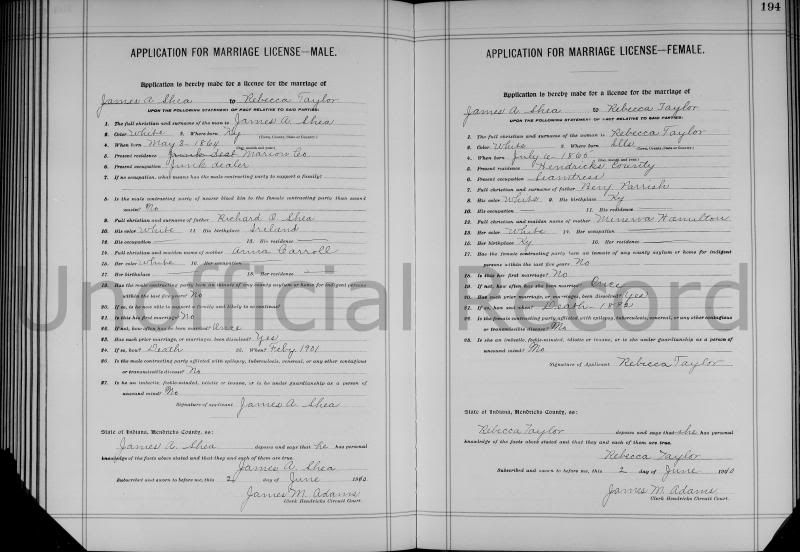 194
APPLICATION FOR MARRIAGE LICENSE—MALE.
Application is hereby made for a license for the marriage of
James A Shea to Rebecca Taylor
UPON THE FOLLOWING STATEMENT OF FACT RELATIVE TO SAID PARTIES:
1. The full christian and surname of the man is James A. Shea
2. Color White 3. Where born Ky
(Town, County, State or Country.)
4. When born May 3 - 1864
(Day, month and year.)
5. Present residence Marion Co
6. Present occupation Junk dealer
7. If no occupation, what means has the male contracting party to support a family?
8. Is the male contracting party of nearer blood kin to the female contracting party than second
cousin? No
9. Full christian and surname of father Richard O Shea
10. His color White 11. His birthplace Ireland
12. His occupation 13. His residence
14. Full christian and maiden name of mother Anna Carroll
15. Her color White 16. Her occupation
17. Her birthplace 18. Her residence
19. Has the male contracting party been an inmate of any county asylum or home for indigent persons
within the last five years? No
20. If so, is he now able to support a family and likely to so continue?
21. Is this his first marriage? No
22. If not, how often has he been married? Once
23. Has such prior marriage, or marriages, been dissolved? Yes
24. If so, how? Death 25. When? Feby 1901
26. Is the male contracting party afflicted with epilepsy, tuberculosis, venereal, or any other contagious
or transmissible disease? No
27. Is he an imbecile, feeble-minded, idiotic or insane, or is he under guardianship as a person of
unsound mind? No
Signature of applicant James A. Shea
State of Indiana, Hendricks County, ss:
James A. Shea deposes and says that he has personal
knowledge of the facts above stated and that they and each of them are true.
James A. Shea
Subscribed and sworn to before me, this 2 day of June
James M Adams
Clerk Hendricks Circuit Court.
APPLICATION FOR MARRIAGE LICENSE—FEMALE.
Application is hereby made for a license for the marriage of
James A Shea to Rebecca Taylor
UPON THE FOLLOWING STATEMENT OF FACT RELATIVE TO SAID PARTIES:
1. The full christian and surname of the woman is Rebecca Taylor
2. Color White 3. Where born Ills
(Town, County, State or Country.)
4. When born July 6 - 1860
(Day, month and year.)
5. Present residence Hendricks County
6. Present occupation Seamstress
7. Full christian and surname of father Berry Parrish
8. His color White 9. His birthplace Ky
10. His occupation 11. His residence
12. Full christian and maiden name of mother Minerva Hamilton
13. Her color White 14. Her occupation
15. Her birthplace Ky 16. Her residence
17. Has the female contracting party been an inmate of any county asylum or home for indigent
persons within the last five years No
18. Is this her first marriage? No
19. If not, how often has she been married? Once
20. Has such prior marriage, or marriages, been dissolved? Yes
21. If so, how and when? Death
Is the female contracting party afflicted with epilepsy, tuberculosis, venereal, or any other contagious
or transmissible disease? No
Is she an imbecile, feeble-minded, idiotic or insane, or is she under guardianship as a person of
unsound mind? No
Signature of Applicant Rebecca Taylor
State of Indiana, Hendricks County, ss:
Rebecca Taylor deposes and says that she has personal
knowledge of the facts above stated and that they and each of them are true.
Rebecca Taylor
Subscribed and sworn to before me, this 2 day of June
James M. Adams
Clerk Hendricks Circuit Court.
Unofficial Record